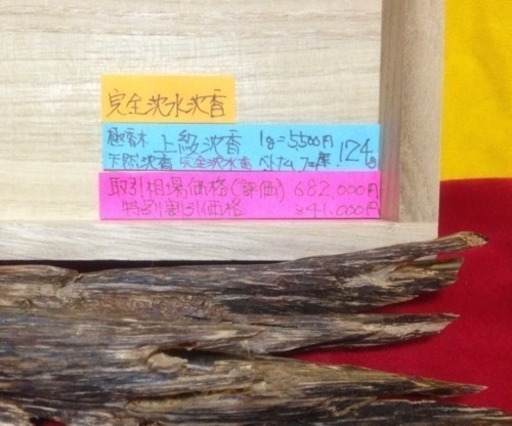 完全沈水沈香
極香木 上級沈香 1g=5,500円
天然沈香 完全沈水香 ベトナムフエ産 124g
取引相場価格(評価) 682,000円
特別割引価格 341,000円